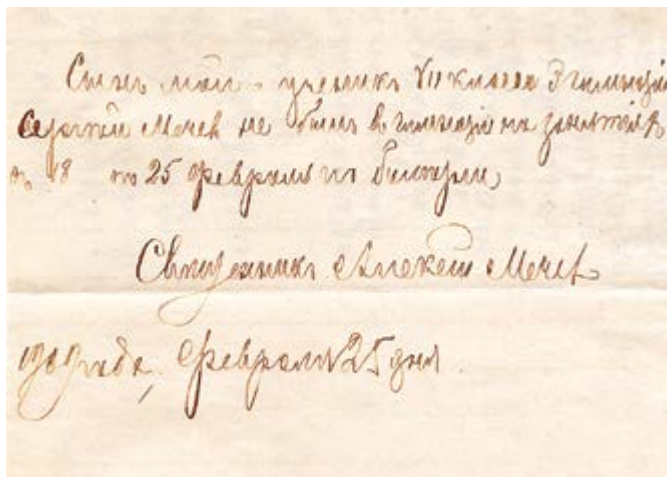 Сынъ мой ученикъ VII класса 3 гимназіи
Сергѣй Мечев не былъ в гимназіи на занятіяхъ
съ 18 по 25 февраля по болѣзни
Священникъ Алексѣй Мечев
1909 года, Февраля 25 дня.